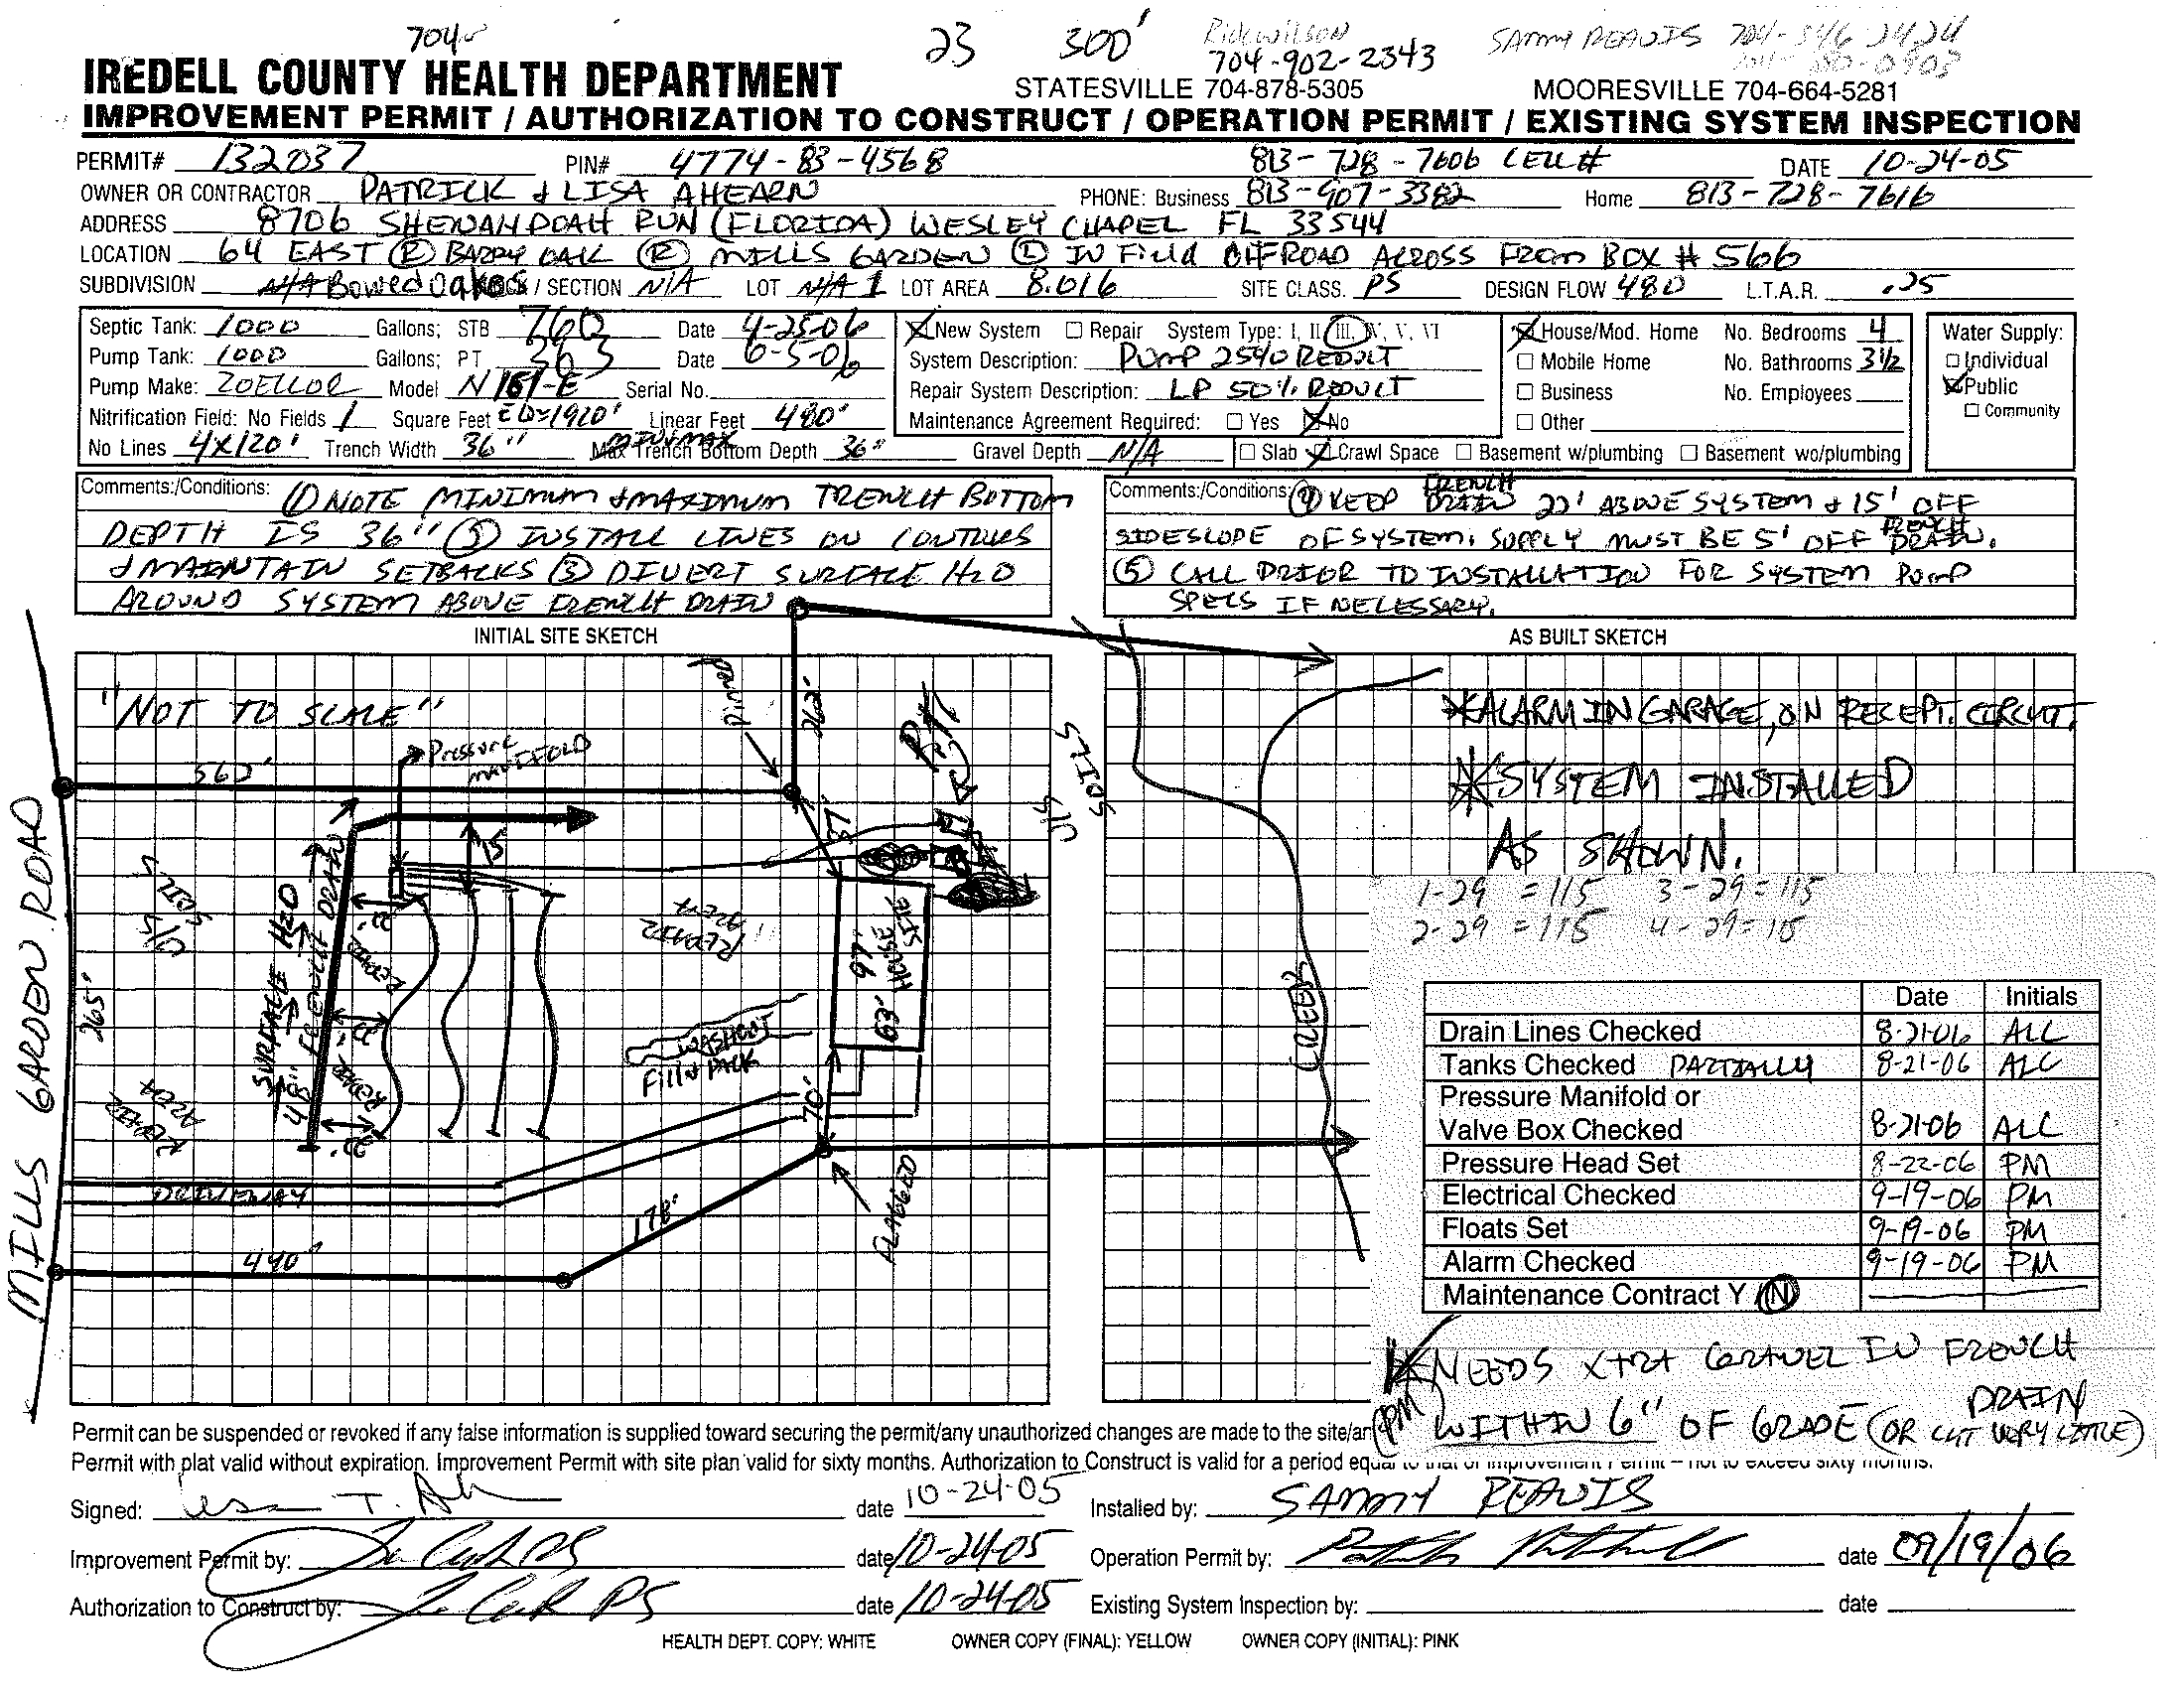 704
23 300' Rick Wilson SAMMY REAVIS 704-546-2424
704-902-2343
IREDELL COUNTY HEALTH DEPARTMENT STATESVILLE 704-878-5305 MOORESVILLE 704-664-5281
IMPROVEMENT PERMIT / AUTHORIZATION TO CONSTRUCT / OPERATION PERMIT / EXISTING SYSTEM INSPECTION
PERMIT# 132037 PIN# 4774-83-4568 813-728-7606 CELL# DATE 10-24-05
OWNER OR CONTRACTOR PATRICK & LISA AHEARN PHONE: Business 813-907-3382 Home 813-728-7616
ADDRESS 8706 SHENANDOAH RUN (FLORIDA) WESLEY CHAPEL FL 33544
LOCATION 64 EAST (R) BARRY OAK (R) MILLS GARDEN (L) IN Field OFF ROAD ACROSS FROM BOX # 566
SUBDIVISION N/A Bowed Oakes / SECTION N/A LOT N/A 1 LOT AREA 8.016 SITE CLASS. PS DESIGN FLOW 480 L.T.A.R. .25
Septic Tank: 1000 Gallons; STB 760 Date 4-25-06
Pump Tank: 1000 Gallons; PT 363 Date 6-5-06
Pump Make: ZOELLOR Model N 161-E Serial No.
Nitrification Field: No Fields 1 Square Feet EQ=1920' Linear Feet 480'
No Lines 4X120' Trench Width 36" MIN & MAX Max Trench Bottom Depth 36" Gravel Depth N/A
New System Repair System Type: I, II, III, IV, V, VI
System Description: PUMP 25% REDUCT
Repair System Description: LP 50% REDUCT
Maintenance Agreement Required: Yes No
Slab Crawl Space Basement w/plumbing Basement wo/plumbing
House/Mod. Home No. Bedrooms 4
Mobile Home No. Bathrooms 3 1/2
Business No. Employees
Other
Water Supply:
Individual
Public
Community
Comments:/Conditions: (1) NOTE MINIMUM & MAXIMUM TRENCH BOTTOM
DEPTH IS 36" (2) INSTALL LINES ON CONTOURS
& MAINTAIN SETBACKS (3) DIVERT SURFACE H2O
AROUND SYSTEM ABOVE FRENCH DRAIN
Comments:/Conditions: (4) KEEP FRENCH DRAIN 22' ABOVE SYSTEM & 15' OFF
SIDESLOPE OF SYSTEM. SUPPLY MUST BE 5' OFF FRENCH DRAIN.
(5) CALL PRIOR TO INSTALLATION FOR SYSTEM PUMP
SPECS IF NECESSARY.
INITIAL SITE SKETCH
"NOT TO SCALE"
Pressure MANIFOLD
562'
262'
37'
15'
U/S SOILS
U/S SOILS
MILLS GARDEN ROAD
265'
SURFACE H2O
48" FRENCH DRAIN
22'
REPAIR
22'
REPAIR
22'
REPAIR AREA
REPAIR AREA
97' HOUSE SITE
63'
WASHOUT
Fill & PACK
70'
DRIVEWAY
178'
FLAGGED
490'
AS BUILT SKETCH
CREEK
*ALARM IN GARAGE, ON RECEPT. CIRCUIT.
*SYSTEM INSTALLED
AS SHOWN.
1-29 = 115 3-29 = 115
2-29 = 115 4-29 = 115
Date Initials
Drain Lines Checked 8-21-06 ALC
Tanks Checked PARTIALLY 8-21-06 ALC
Pressure Manifold or
Valve Box Checked 8-21-06 ALC
Pressure Head Set 8-22-06 PM
Electrical Checked 9-19-06 PM
Floats Set 9-19-06 PM
Alarm Checked 9-19-06 PM
Maintenance Contract Y / N
NEEDS XTRA GRAVEL IN FRENCH
DRAIN
PM WITHIN 6" OF GRADE (OR CUT VERY LITTLE)
Permit can be suspended or revoked if any false information is supplied toward securing the permit/any unauthorized changes are made to the site/
Permit with plat valid without expiration. Improvement Permit with site plan valid for sixty months. Authorization to Construct is valid for a period equal to that of Improvement Permit – not to exceed sixty months.
Signed: date 10-24-05 Installed by: SAMMY REAVIS
Improvement Permit by: date 10-24-05 Operation Permit by: date 09/19/06
Authorization to Construct by: date 10-24-05 Existing System Inspection by: date
HEALTH DEPT. COPY: WHITE OWNER COPY (FINAL): YELLOW OWNER COPY (INITIAL): PINK